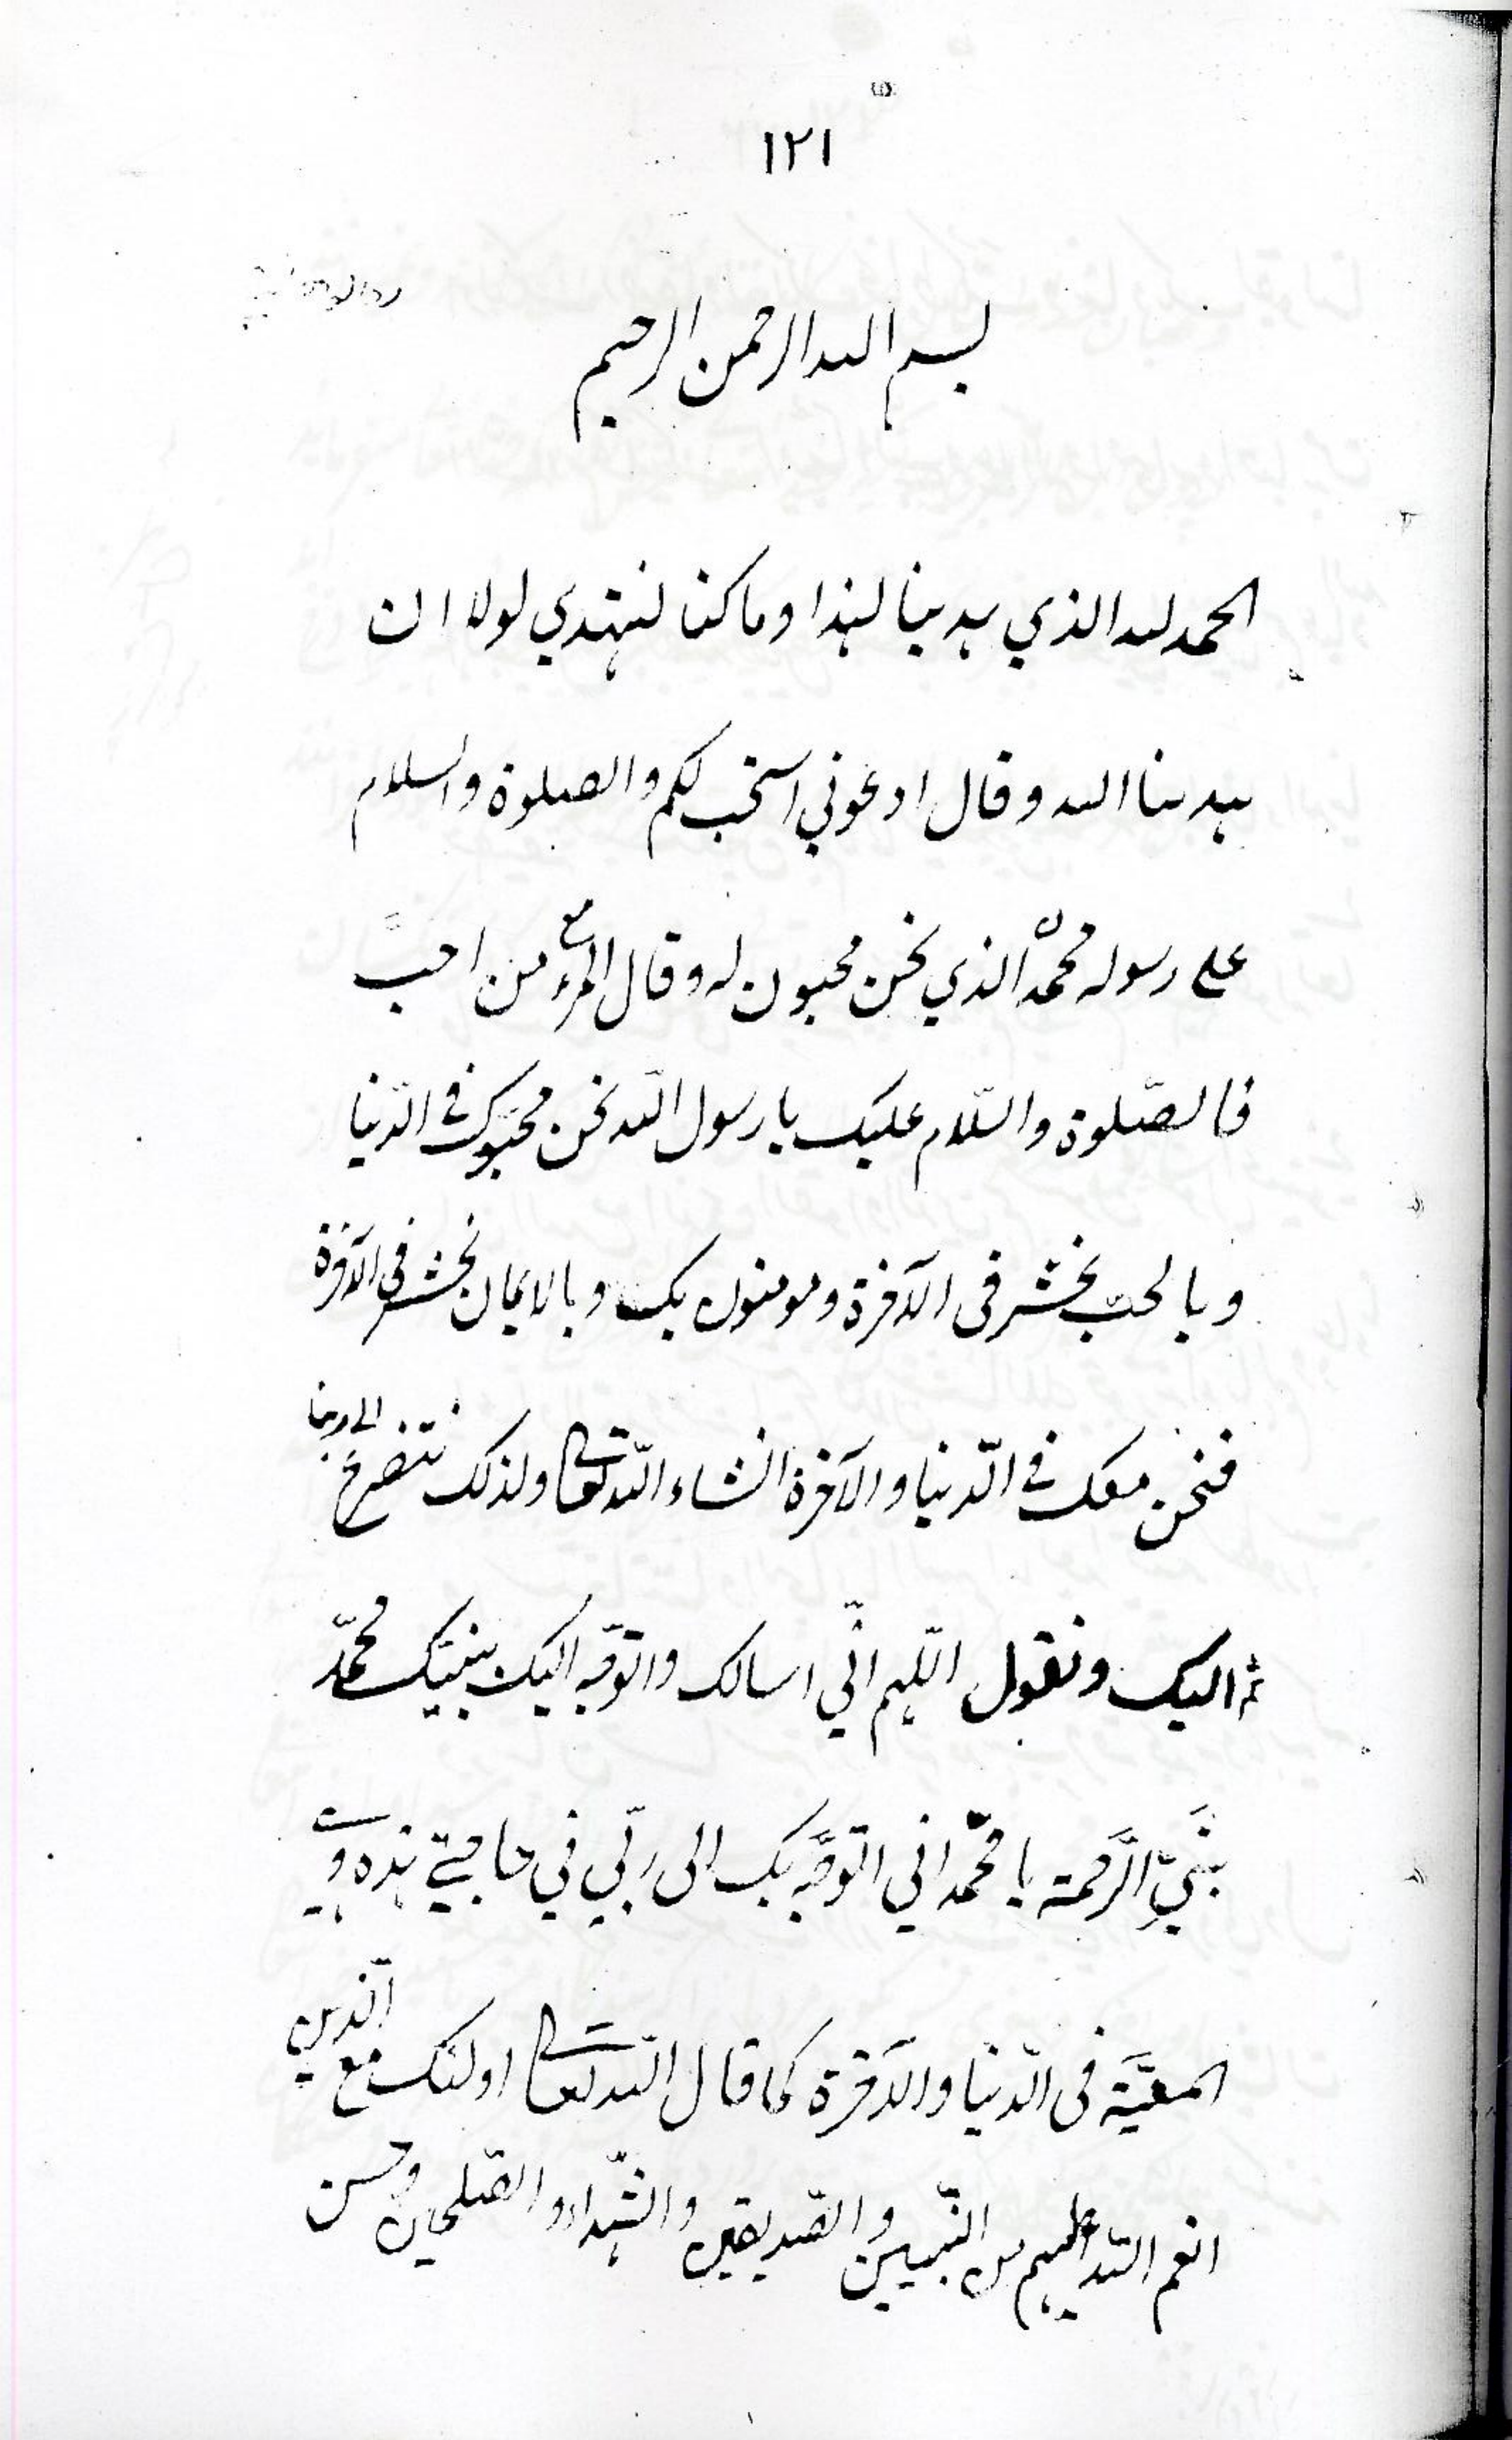 ١٢١
بسم الله الرحمن الرحيم
الحمد لله الذي هدينا لهذا وما كنا لنهتدي لولا ان
هدينا الله وقال ادعوني استجب لكم والصلوة والسلام
على رسوله محمدن الذي نحن محبون له وقال المرء مع من احبّ
فالصّلوة والسّلام عليك يا رسول اللّه نحن محبّوك في الدّنيا
وبالحبّ نحشر فى الآخرة ومومنون بك وبالايمان نحشر في الآخرة
فنحن معك في الّدنيا والآخرة انشاء اللّه تعالى ولذلك نتضرع الى ربنا
ثم اليك ونقول اللّهم انّي اسالك واتوجّه اليك بنبيّك محمّد
نبيّ الرّحمة يا محمّد اني اتوجّه بك الى ربّي في حاجتي هذه وهي
المعيّة فى الدّنيا والآخرة كما قال اللّه تعالى اولئك مع الّذين
انعم اللّه عليهم من النّبيين والصّديقين والشّهداء والصّلحين وحسن